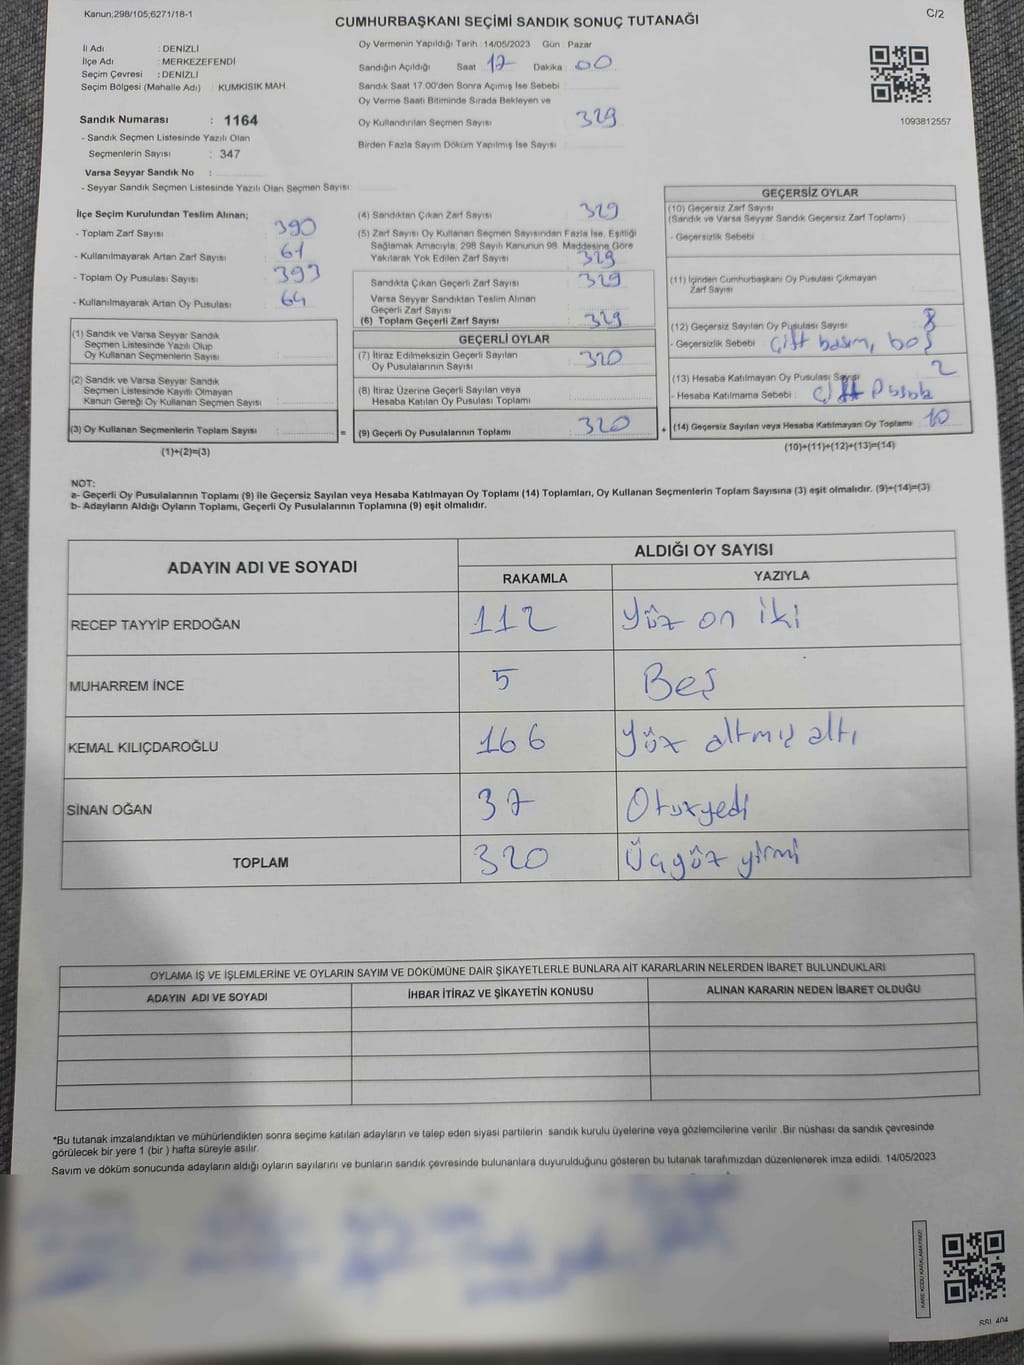 Kanun;298/105;6271/18-1
C/2
CUMHURBAŞKANI SEÇİMİ SANDIK SONUÇ TUTANAĞI
İl Adı : DENİZLİ
İlçe Adı : MERKEZEFENDİ
Seçim Çevresi : DENİZLİ
Seçim Bölgesi (Mahalle Adı) : KUMKISIK MAH.
Sandık Numarası : 1164
- Sandık Seçmen Listesinde Yazılı Olan
Seçmenlerin Sayısı : 347
Varsa Seyyar Sandık No :
- Seyyar Sandık Seçmen Listesinde Yazılı Olan Seçmen Sayısı
Oy Vermenin Yapıldığı Tarih :14/05/2023 Gün : Pazar
Sandığın Açıldığı Saat 17 Dakika 00
Sandık Saat 17:00'den Sonra Açımış İse Sebebi
Oy Verme Saati Bitiminde Sırada Bekleyen ve
Oy Kullandırılan Seçmen Sayısı 329
Birden Fazla Sayım Döküm Yapılmış İse Sayısı
1093812557
İlçe Seçim Kurulundan Teslim Alınan;
- Toplam Zarf Sayısı 390
- Kullanılmayarak Artan Zarf Sayısı 61
- Toplam Oy Pusulası Sayısı 393
- Kullanılmayarak Artan Oy Pusulası 64
(1) Sandık ve Varsa Seyyar Sandık
Seçmen Listesinde Yazılı Olup
Oy Kullanan Seçmenlerin Sayısı
(2) Sandık ve Varsa Seyyar Sandık
Seçmen Listesinde Kayıtlı Olmayan
Kanun Gereği Oy Kullanan Seçmen Sayısı
(3) Oy Kullanan Seçmenlerin Toplam Sayısı =
(1)+(2)=(3)
(4) Sandıktan Çıkan Zarf Sayısı 329
(5) Zarf Sayısı Oy Kullanan Seçmen Sayısından Fazla İse, Eşitliği
Sağlamak Amacıyla; 298 Sayılı Kanunun 98. Maddesine Göre
Yakılarak Yok Edilen Zarf Sayısı 329
Sandıkta Çıkan Geçerli Zarf Sayısı 329
Varsa Seyyar Sandıktan Teslim Alınan
Geçerli Zarf Sayısı
(6) Toplam Geçerli Zarf Sayısı 329
GEÇERLİ OYLAR
(7) İtiraz Edilmeksizin Geçerli Sayılan
Oy Pusulalarının Sayısı 320
(8) İtiraz Üzerine Geçerli Sayılan veya
Hesaba Katılan Oy Pusulası Toplamı
(9) Geçerli Oy Pusulalarının Toplamı 320 +
GEÇERSİZ OYLAR
(10) Geçersiz Zarf Sayısı
(Sandık ve Varsa Seyyar Sandık Geçersiz Zarf Toplamı)
- Geçersizlik Sebebi
(11) İçinden Cumhurbaşkanı Oy Pusulası Çıkmayan
Zarf Sayısı
(12) Geçersiz Sayılan Oy Pusulası Sayısı 8
- Geçersizlik Sebebi Çift basım, boş
(13) Hesaba Katılmayan Oy Pusulası Sayısı 2
- Hesaba Katılmama Sebebi Çift
(14) Geçersiz Sayılan veya Hesaba Katılmayan Oy Toplamı 10
(10)+(11)+(12)+(13)=(14)
NOT:
a- Geçerli Oy Pusulalarının Toplamı (9) ile Geçersiz Sayılan veya Hesaba Katılmayan Oy Toplamı (14) Toplamları, Oy Kullanan Seçmenlerin Toplam Sayısına (3) eşit olmalıdır. (9)+(14)=(3)
b- Adayların Aldığı Oyların Toplamı, Geçerli Oy Pusulalarının Toplamına (9) eşit olmalıdır.
ADAYIN ADI VE SOYADI ALDIĞI OY SAYISI
RAKAMLA YAZIYLA
RECEP TAYYİP ERDOĞAN 112 Yüz on iki
MUHARREM İNCE 5 Beş
KEMAL KILIÇDAROĞLU 166 Yüz altmış altı
SİNAN OĞAN 37 Otuzyedi
TOPLAM 320 Üçyüz yirmi
OYLAMA İŞ VE İŞLEMLERİNE VE OYLARIN SAYIM VE DÖKÜMÜNE DAİR ŞİKAYETLERLE BUNLARA AİT KARARLARIN NELERDEN İBARET BULUNDUKLARI
ADAYIN ADI VE SOYADI İHBAR İTİRAZ VE ŞİKAYETİN KONUSU ALINAN KARARIN NEDEN İBARET OLDUĞU
*Bu tutanak imzalandıktan ve mühürlendikten sonra seçime katılan adayların ve talep eden siyasi partilerin sandık kurulu üyelerine veya gözlemcilerine verilir .Bir nüshası da sandık çevresinde
görülecek bir yere 1 (bir ) hafta süreyle asılır.
Sayım ve döküm sonucunda adayların aldığı oyların sayılarını ve bunların sandık çevresinde bulunanlara duyurulduğunu gösteren bu tutanak tarafımızdan düzenlenerek imza edildi. 14/05/2023
KARE KODU KARALAMAYINIZ!